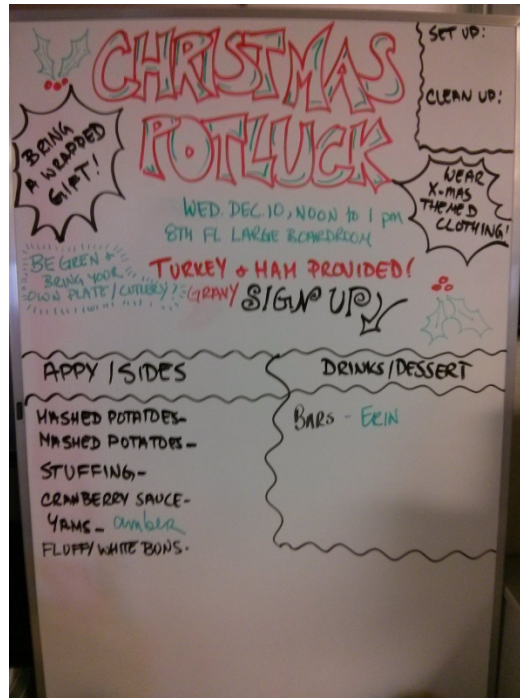 CHRISTMAS
POTLUCK
SET UP:
CLEAN UP:
BRING
A WRAPPED
GIFT!
WEAR
X-MAS
THEMED
CLOTHING!
WED. DEC. 10, NOON to 1 pm
8TH FL LARGE BOARDROOM
BE GREEN &
BRING YOUR
OWN PLATE/CUTLERY?
TURKEY & HAM PROVIDED!
GRAVY
SIGN UP
APPY / SIDES
MASHED POTATOES-
MASHED POTATOES-
STUFFING-
CRANBERRY SAUCE-
YAMS- amber
FLUFFY WHITE BONS-
DRINKS/DESSERT
BARS - ERIN